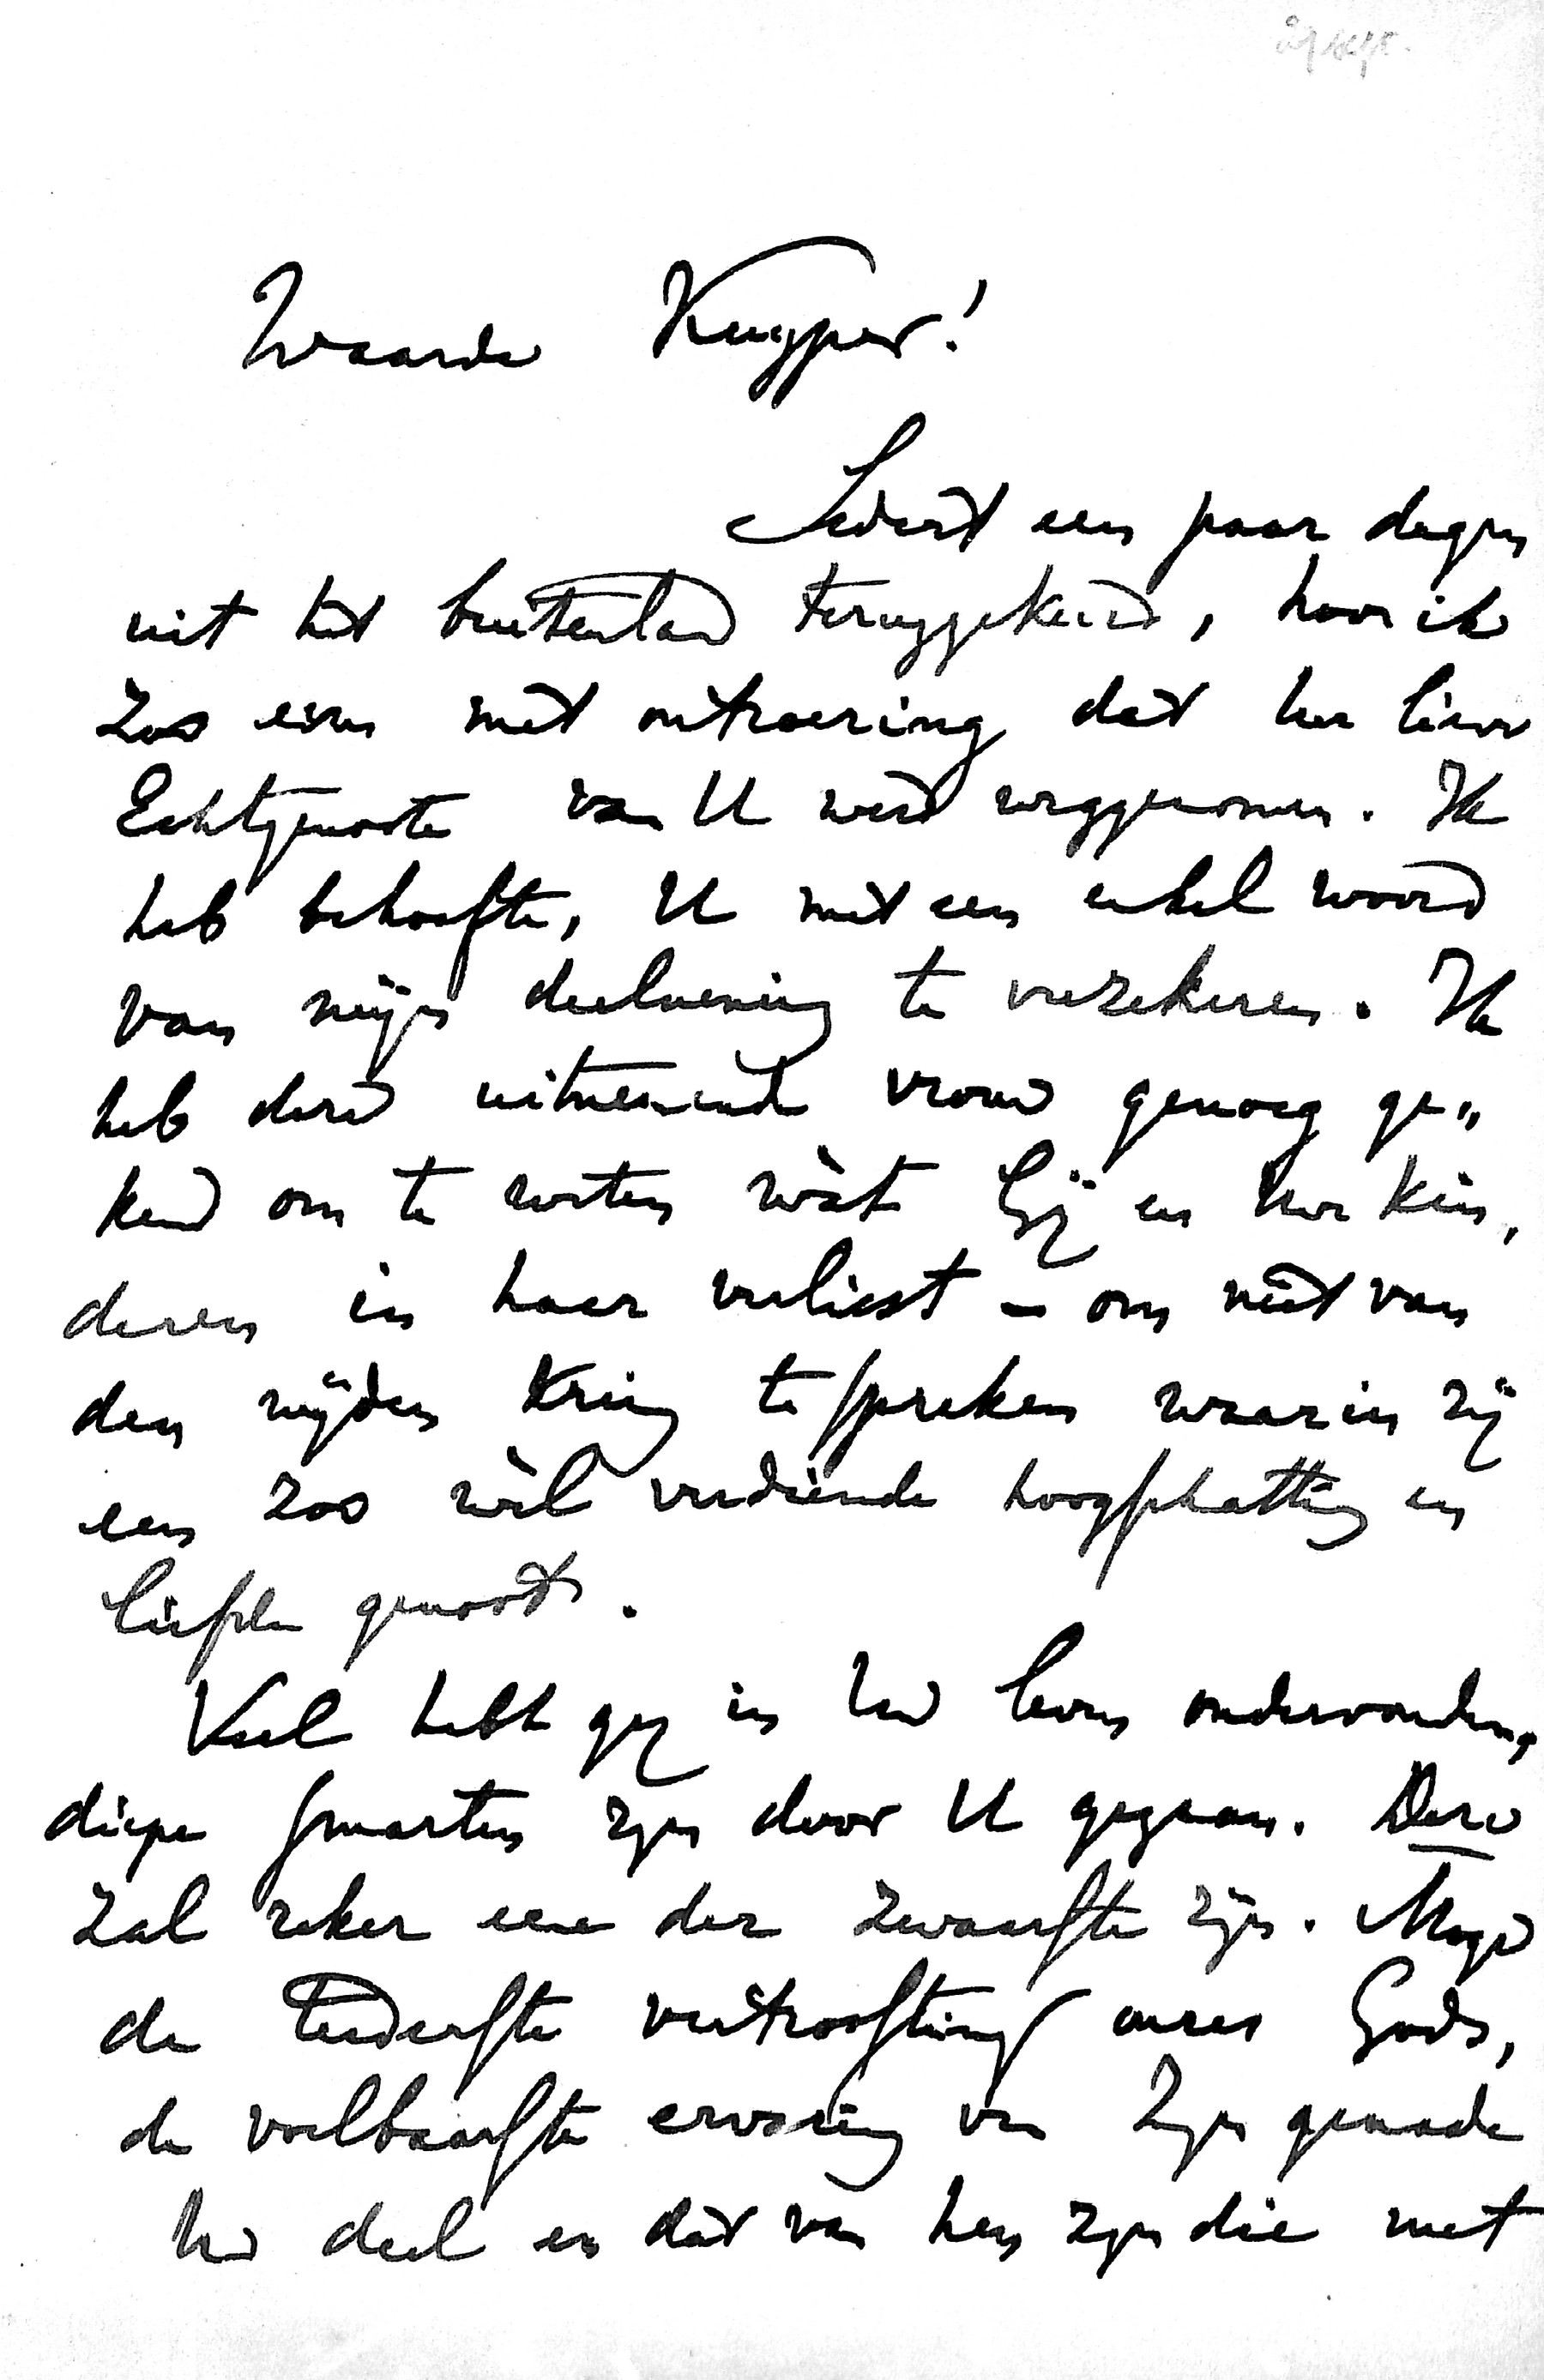 29 sept.
Waarde Kuyper!
Sedert een paar dagen
uit het buitenland teruggekeerd, hoor ik
zoo even met ontroering dat Uw lieve
Echtgenoote van U werd weggenomen. Ik
heb behoefte, U met een enkel woord
van mijn deelneming te verzekeren. Ik
heb deze uitnemende vrouw genoeg ge„
kend om te weten wàt Gij en Uwe kin„
deren in haar verliest – om niet van
den wijden kring te spreken waarin zij
een zoo wèl verdiende hoogschatting en
liefde genoot.
Veel hebt gij in Uw leven ondervonden,
diepe smarten zijn door U gegaan. Deze
zal zeker eene der zwaarste zijn. Moge
de teederste vertroosting onzes Gods,
de voelbaarste ervaring van Zijn genade
Uw deel en dat van hen zijn die met